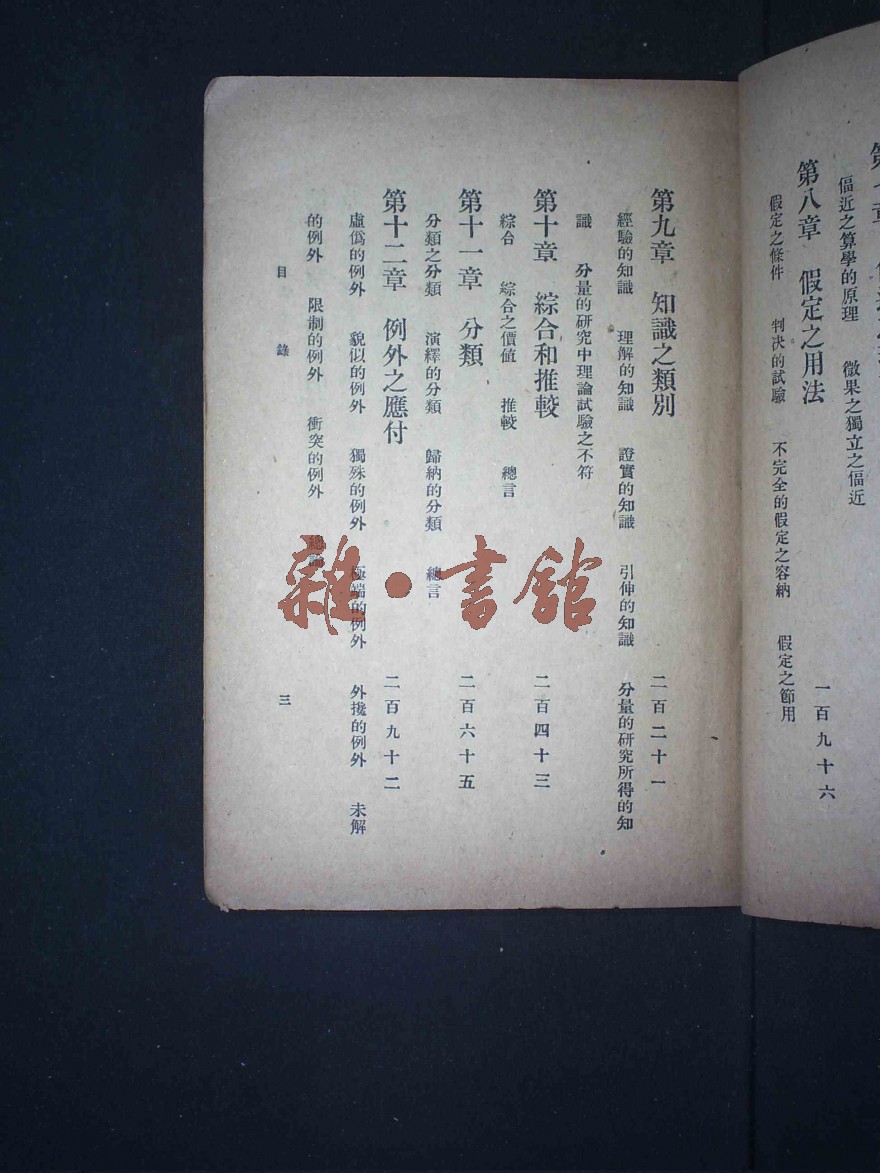 偪近之算學的原理　微果之獨立之偪近
第八章　假定之用法　一百九十六
假定之條件　判決的試驗　不完全的假定之容納　假定之節用
第九章　知識之類別　二百二十一
經驗的知識　理解的知識　證實的知識　引伸的知識　分量的研究所得的知
識　分量的研究中理論試驗之不符
第十章　綜合和推較　二百四十三
綜合　綜合之價値　推較　總言
第十一章　分類　二百六十五
分類之分類　演繹的分類　歸納的分類　總言
第十二章　例外之應付　二百九十二
虛僞的例外　貌似的例外　獨殊的例外　極端的例外　外攙的例外　未解
的例外　限制的例外　衝突的例外　總論
目錄　三
雜·書館